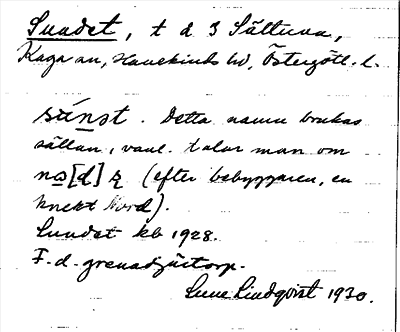 Sundet, t d 3 Sättuna,
Kaga sn, Hanekinds hd, Östergötl. l.
sún̲st. Detta namn brukas
sällan, vanl. talar man om
no̲[d]  (efter bebyggaren, en
knekt Nord).
Sundet kb 1928.
F.d. grenadjärtorp.
Sune Lindqvist 1930.